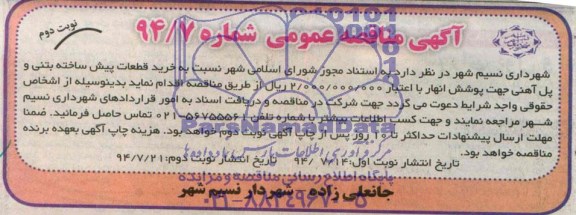 آگهی مناقصه عمومی شماره ۹۴/۷
نوبت دوم
شهرداری نسیم شهر در نظر دارد به استناد مجوز شورای اسلامی شهر نسبت به خرید قطعات پیش ساخته بتنی و
پل آهنی جهت پوشش انهار با اعتبار ۲/۰۰۰/۰۰۰/۰۰۰ ریال از طریق مناقصه اقدام نماید بدینوسیله از اشخاص
حقوقی واجد شرایط دعوت می گردد جهت شرکت در مناقصه و دریافت اسناد به امور قراردادهای شهرداری نسیم
شهر مراجعه نمایند و جهت کسب اطلاعات بیشتر با شماره تلفن ۵۶۷۵۵۵۶۱-۰۲۱ تماس حاصل فرمائید. ضمنا
مهلت ارسال پیشنهادات حداکثر تا ۱۰ روز پس از چاپ آگهی نوبت دوم خواهد بود. هزینه چاپ آگهی بعهده برنده
مناقصه خواهد بود.
تاریخ انتشار نوبت اول: ۹۴/۷/۱۴ تاریخ انتشار نوبت دوم: ۹۴/۷/۲۱
جانعلی زاده - شهردار نسیم شهر
ParsNamadData
مرکز فرآوری اطلاعات پارس نماد داده ها
پایگاه اطلاع رسانی مناقصه و مزایده
۰۲۱-۸۸۳۴۹۶۷۰-۵